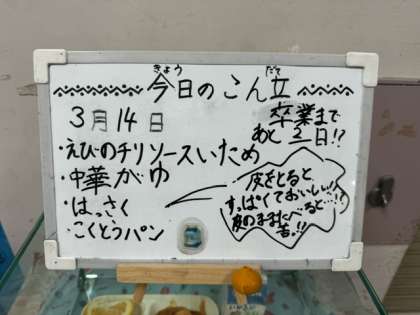 今日のこん立
きょう だて
3月14日
卒業まで
あと2日!?
・えびのチリソースいため
・中華がゆ
・はっさく
・こくとうパン
皮をとると
すっぱくておいしい!!
皮のままたべると…!!